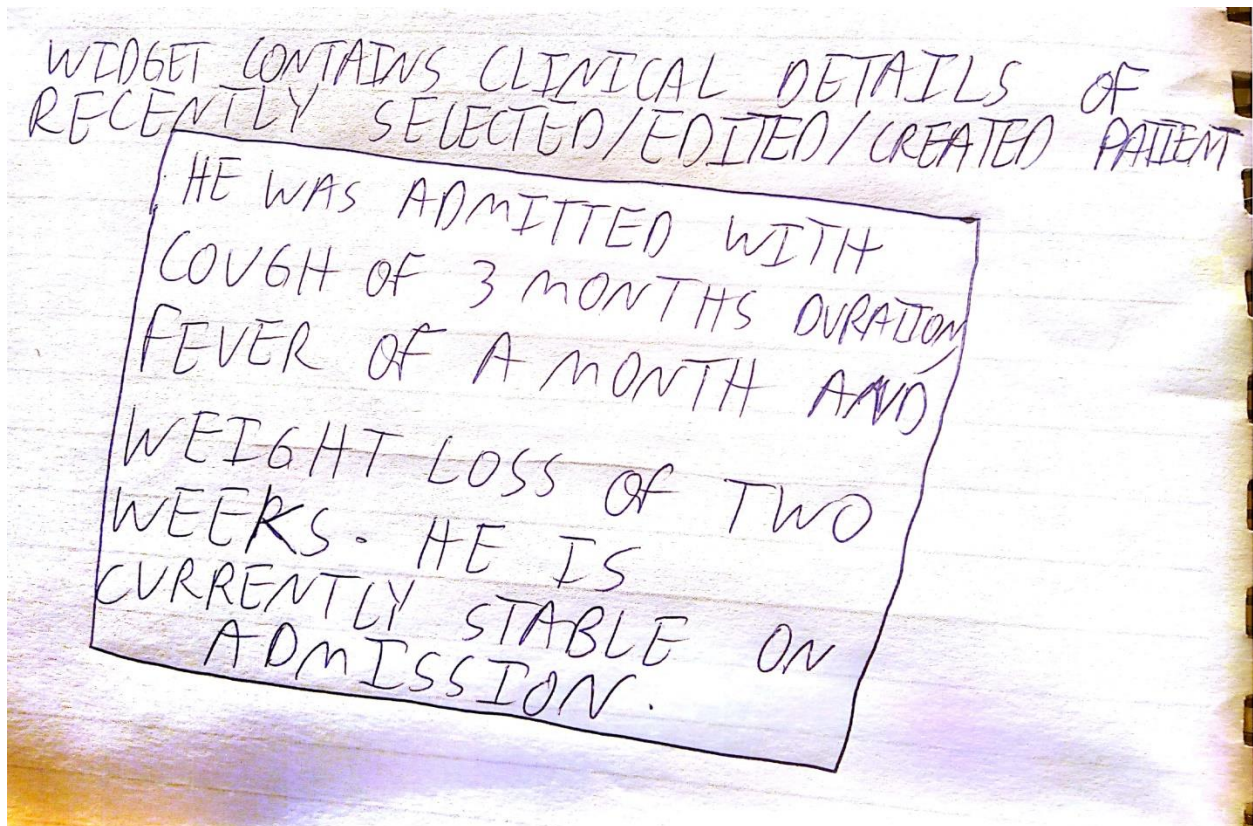 WIDGET CONTAINS CLINICAL DETAILS OF
RECENTLY SELECTED/EDITED/CREATED PATIENT
HE WAS ADMITTED WITH
COUGH OF 3 MONTHS DURATION,
FEVER OF A MONTH AND
WEIGHT LOSS OF TWO
WEEKS. HE IS
CURRENTLY STABLE ON
ADMISSION.